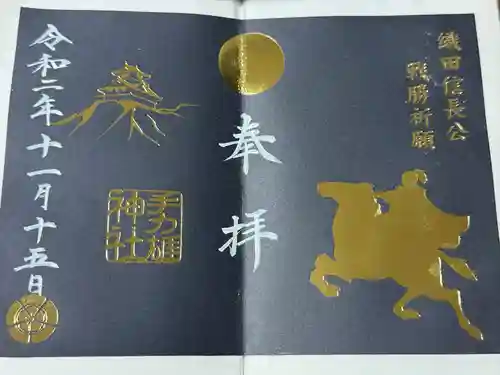 織田信長公
戦勝祈願
奉拝
手力雄
神社
令和二年十一月十五日